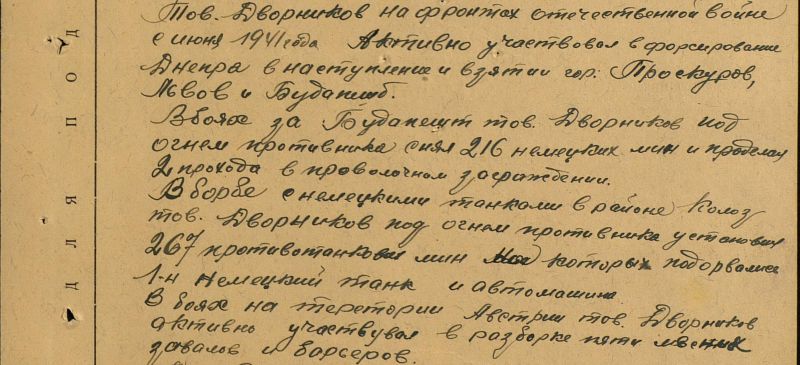 Тов. Дворников на фронтах отечественной войне
с июня 1941 года Активно участвовал в форсировании
Днепра в наступление и взятии гор: Проскуров,
Львов и Будапешт.
В боях за Будапешт тов. Дворников под
огнем противника снял 216 немецких мин и проделал
2 прохода в проволочном заграждении.
В борбе с немецкими танками в районе Колоз
тов. Дворников под огнем противника установил
267 противотанковых мин на которых подорвались
1-н немецкий танк и автомашина
В боях на теретории Австрии тов. Дворников
активно участвувал в разборке пяти
завалов и барсеров.
ДЛЯ ПОД